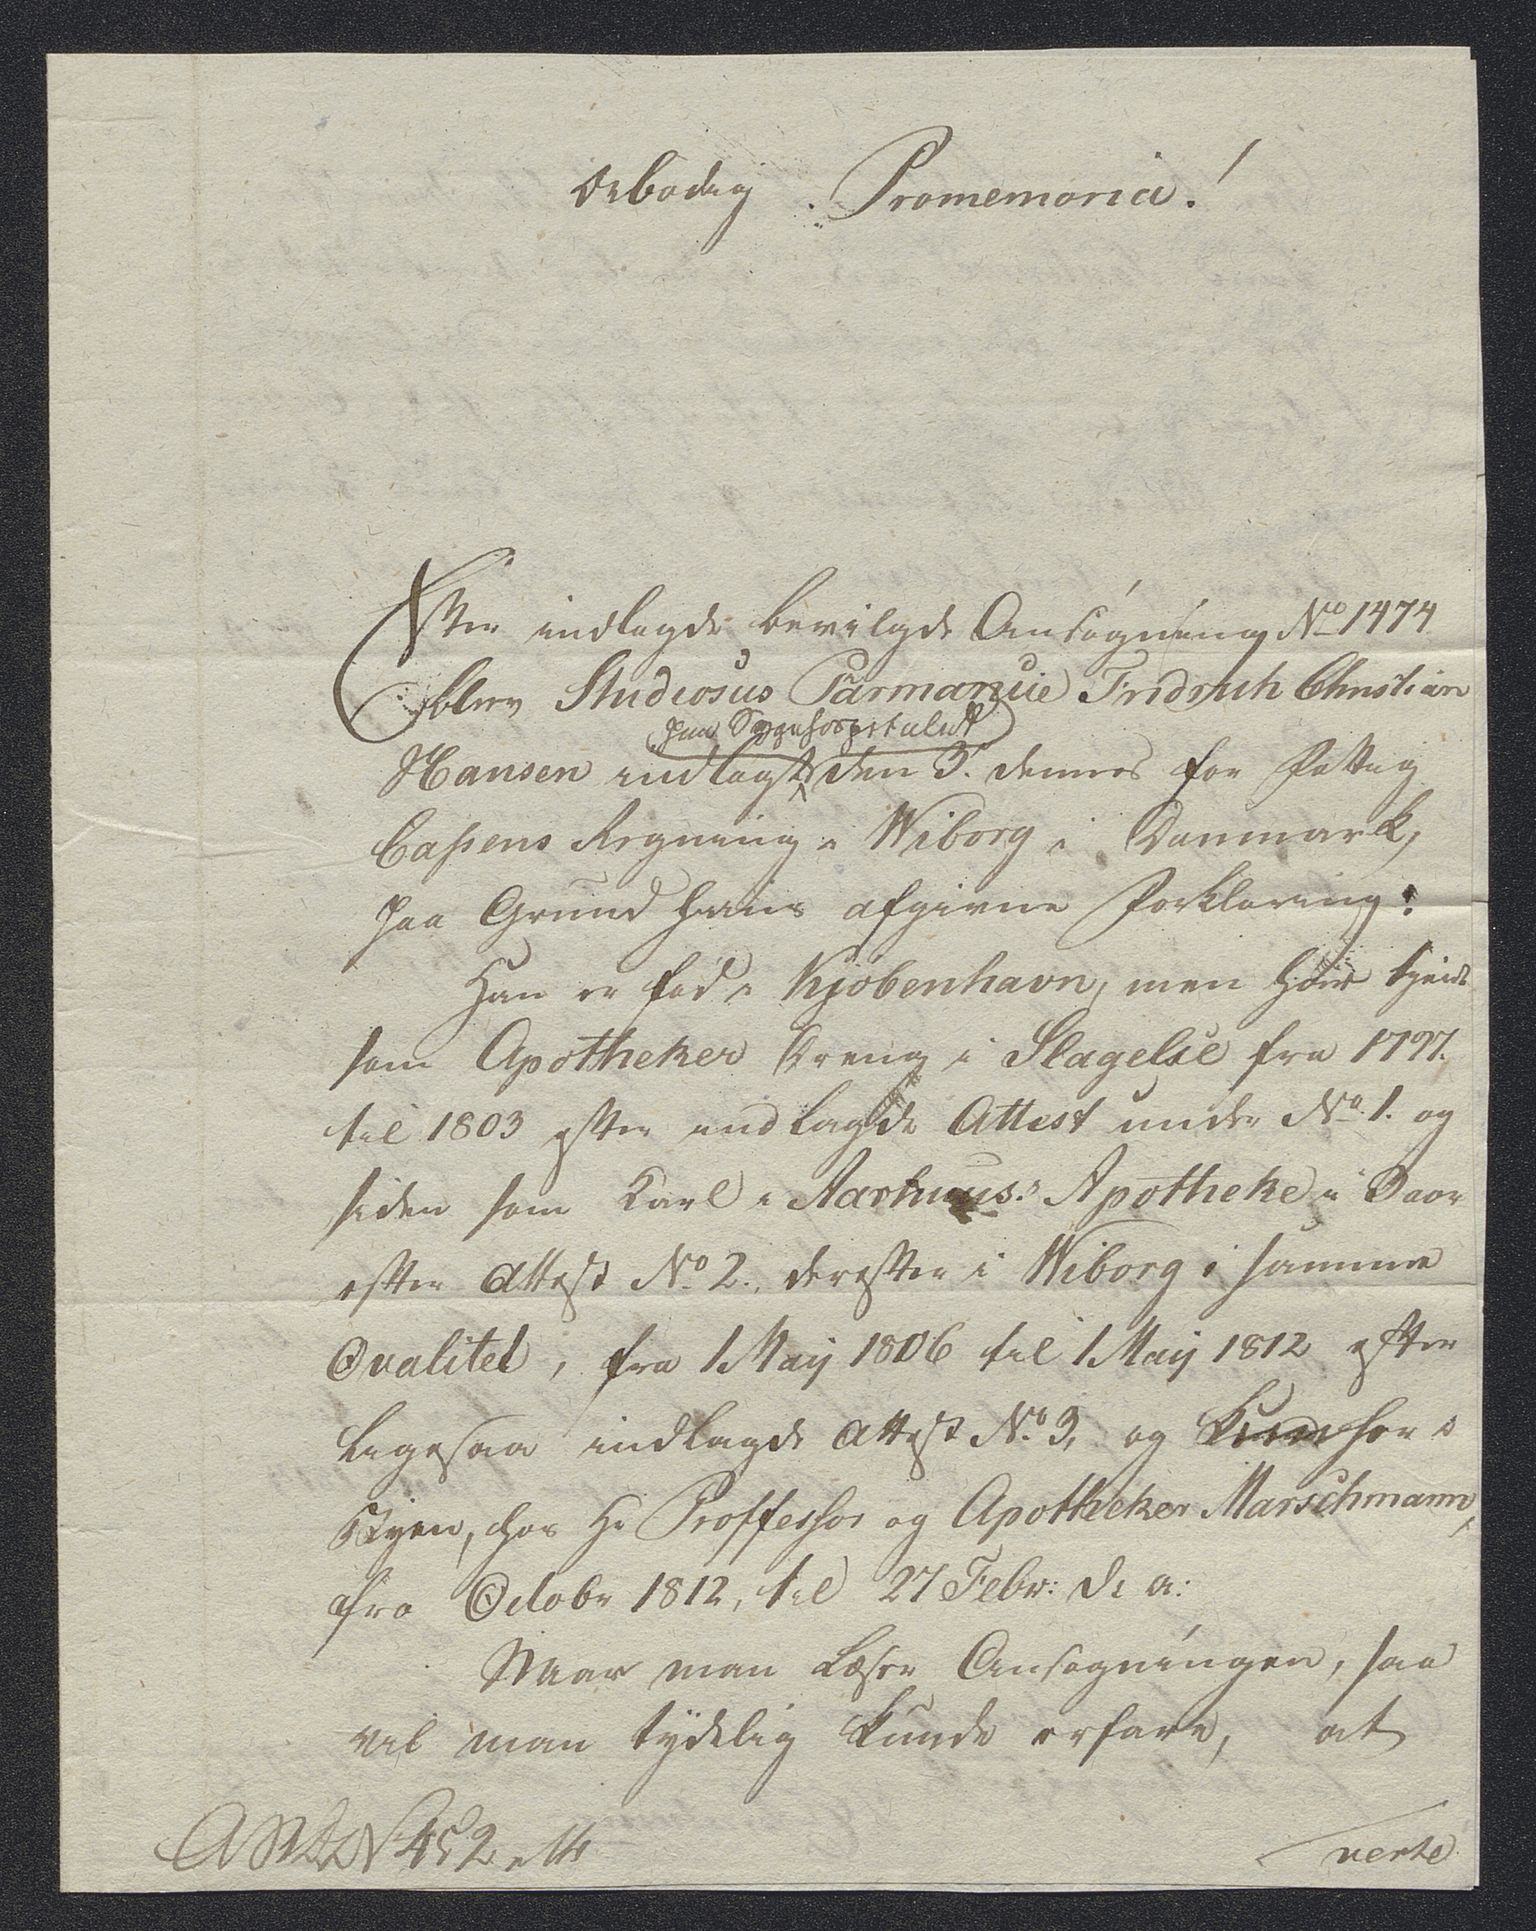 Ærbødig Promemoria!
Efter indlagde bevilgde Ansøgning No 1474
blev Studiosus Farmanue Fridrich Christian
paa Sygehospitalet
Hansen indlagt den 3. dennes for Fattig
Cassens Regning i Wiborg i Danmark,
paa Grund hans afgivne Forklaring:
Han er fød i Kjøbenhavn, men har tjent
som Apotheker Dreng i Slagelse fra 1797.
til 1803 efter indlagde Attest under No. 1. og
siden som Karl i Aarhuus Apotheke i
efter Attest No 2. derefter i Wiborg i samme
Qvalitet, fra 1 Maij 1806 til 1 Maij 1812 efter
ligesaa indlagde Attest No. 3, og her i
Byen, hos Hr Proffessor og Apotheker Marschmann,
fra Octobr 1812, til 27 Febr: d. a:
Naar man læser Ansøgningen, saa
vil man tydelig kunde erfare, at
452
verte